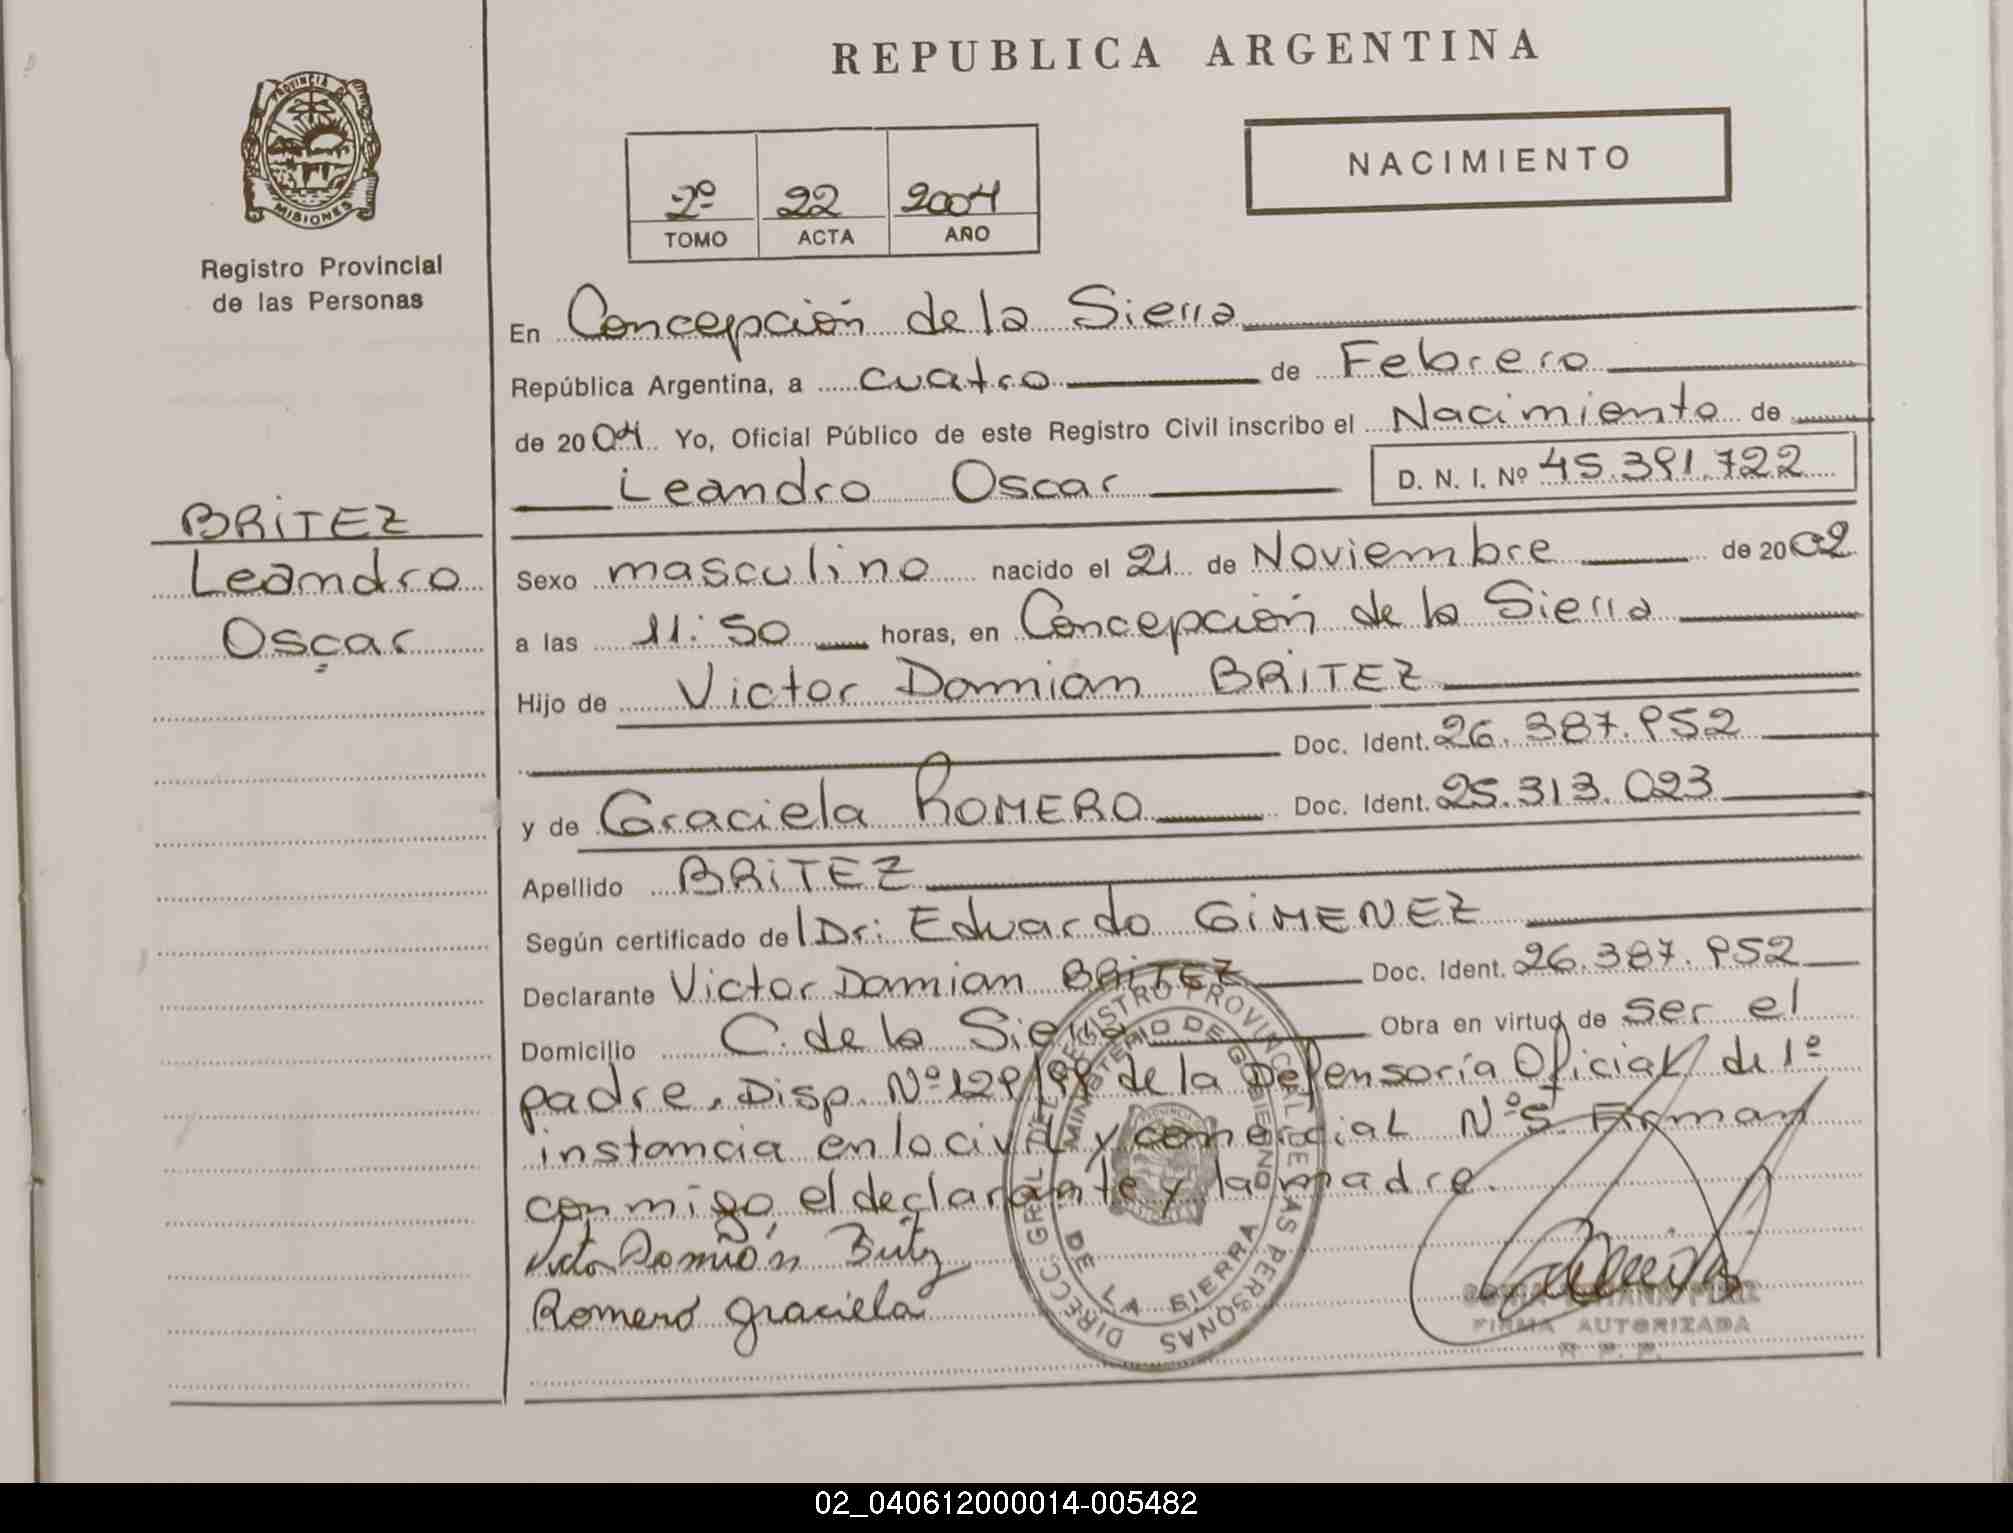 REPUBLICA ARGENTINA
PROVINCIA DE
MISIONES
Registro Provincial
de las Personas
NACIMIENTO
2º 22 2004
TOMO ACTA AÑO
En Concepción de la Sierra
República Argentina, a cuatro de Febrero
de 2004 Yo, Oficial Público de este Registro Civil inscribo el Nacimiento de
Leandro Oscar D. N. I. Nº 45.391.722
BRITEZ
Leandro
Oscar
Sexo masculino nacido el 21 de Noviembre de 2002
a las 11:50 horas, en Concepción de la Sierra
Hijo de Victor Damian BRITEZ
Doc. Ident. 26.387.952
y de Graciela ROMERO Doc. Ident. 25.313.023
Apellido BRITEZ
Según certificado del Dr: Eduardo GIMENEZ
Declarante Victor Damian BRITEZ Doc. Ident. 26.387.952
Domicilio C. de la Sierra Obra en virtud de ser el
padre, Disp. Nº 129/98 de la Defensoría Oficial de 1º
instancia en lo civil y comercial Nº 5. Firman
conmigo el declarante y la madre.
Victor Damián Britez
Romero Graciela
DIRECC. GRAL DEL REGISTRO PROVINCIAL DE LAS PERSONAS
MINISTERIO DE GOBIERNO
DE LA SIERRA
FIRMA AUTORIZADA
R. P. P.
02_040612000014-005482